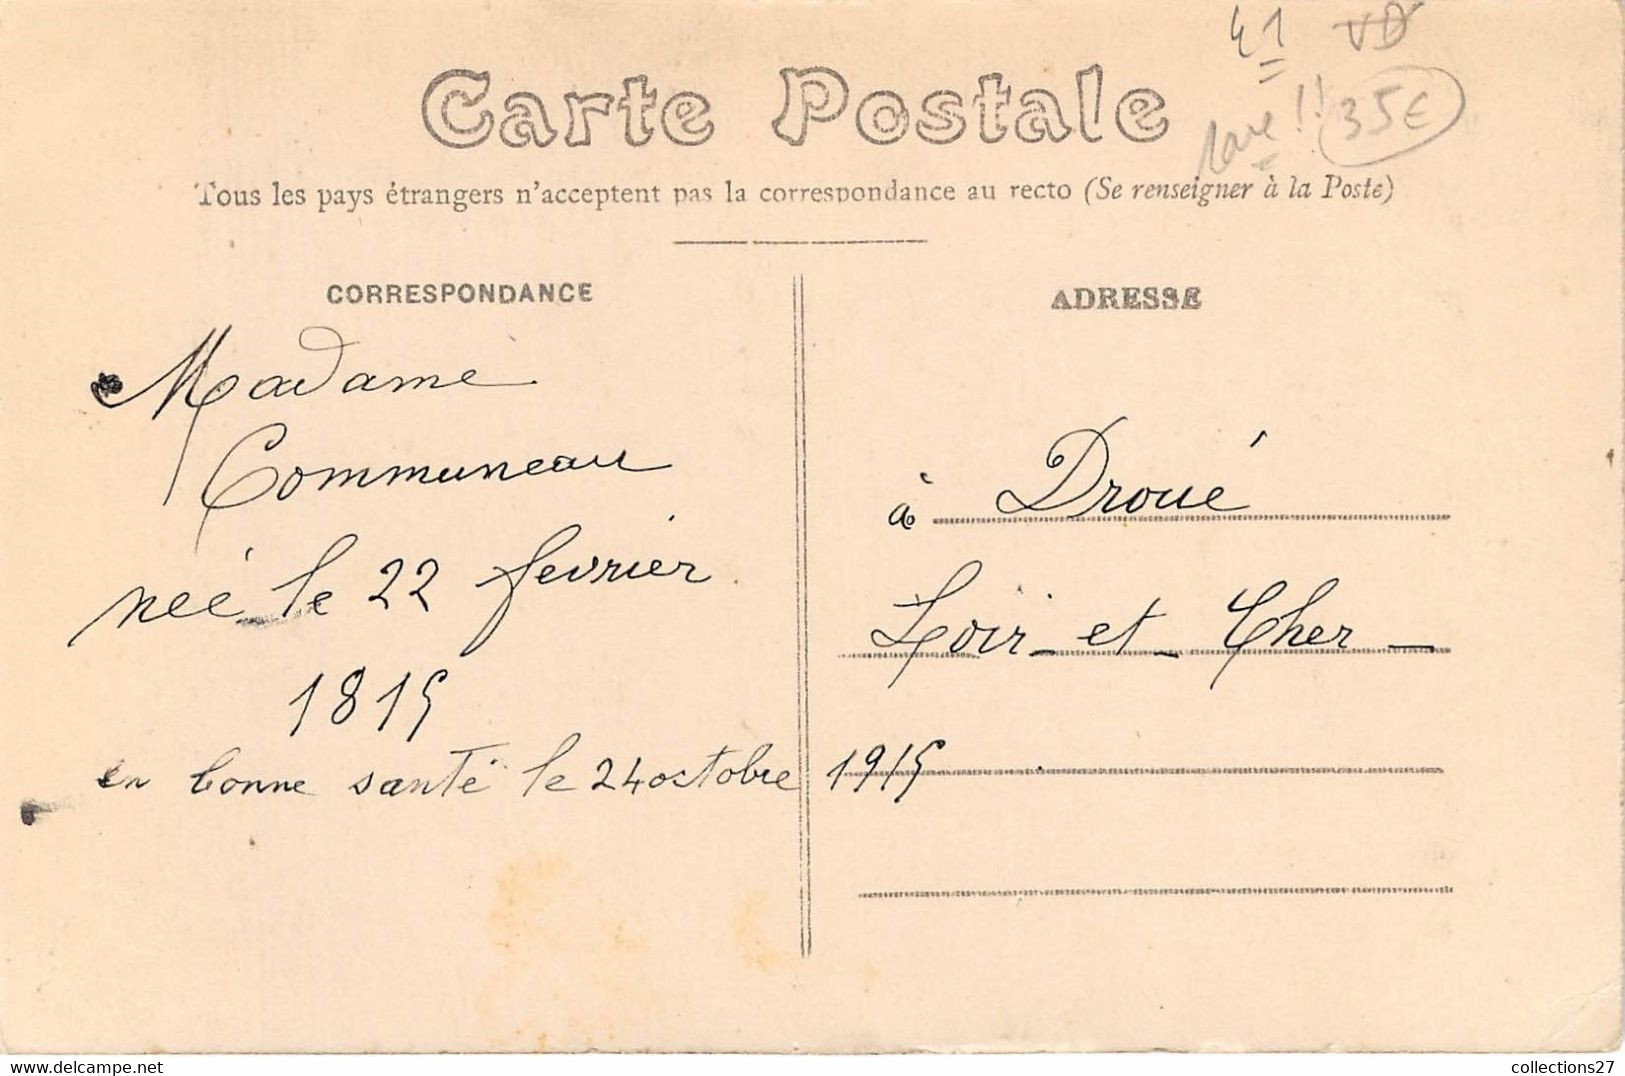 41 VD
rare !! 35€
Carte Postale
Tous les pays étrangers n'acceptent pas la correspondance au recto (Se renseigner à la Poste)
CORRESPONDANCE
Madame
Communeau
née le 22 fevrier
1815
en bonne santé le 24 octobre 1915
ADRESSE
à Droué
Loir-et-Cher-
collections27